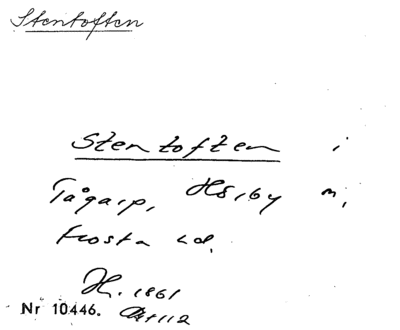 Stentoften
Stentoften i
Tågarp, Hörby n,
Frosta hd.
H. 1861
Nr 10446.